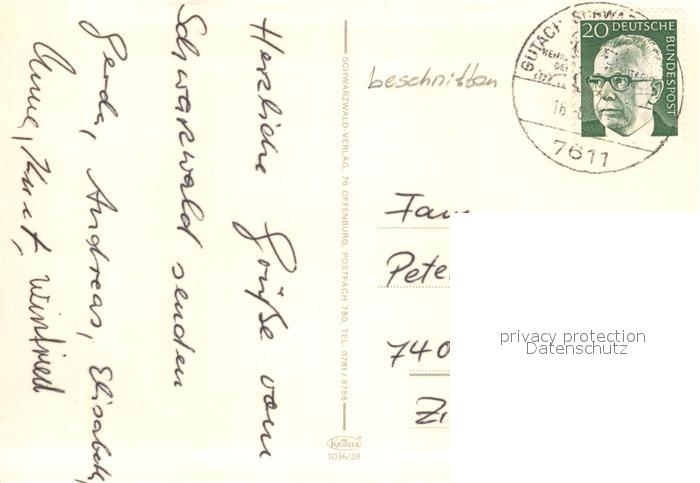 Herzliche Grüße vom
Schwarzwald senden
Gerda, Andreas, Elisabeth,
Anna, Kurt, Winfried
SCHWARZWALD-VERLAG, 76 OFFENBURG, POSTFACH 780, TEL. 0781/3756
Krüger
1036/28
beschnitten
20 DEUTSCHE
BUNDESPOST
GUTACH SCHWA
16
7611
Fam
Pete
740
Zi
privacy protection
Datenschutz